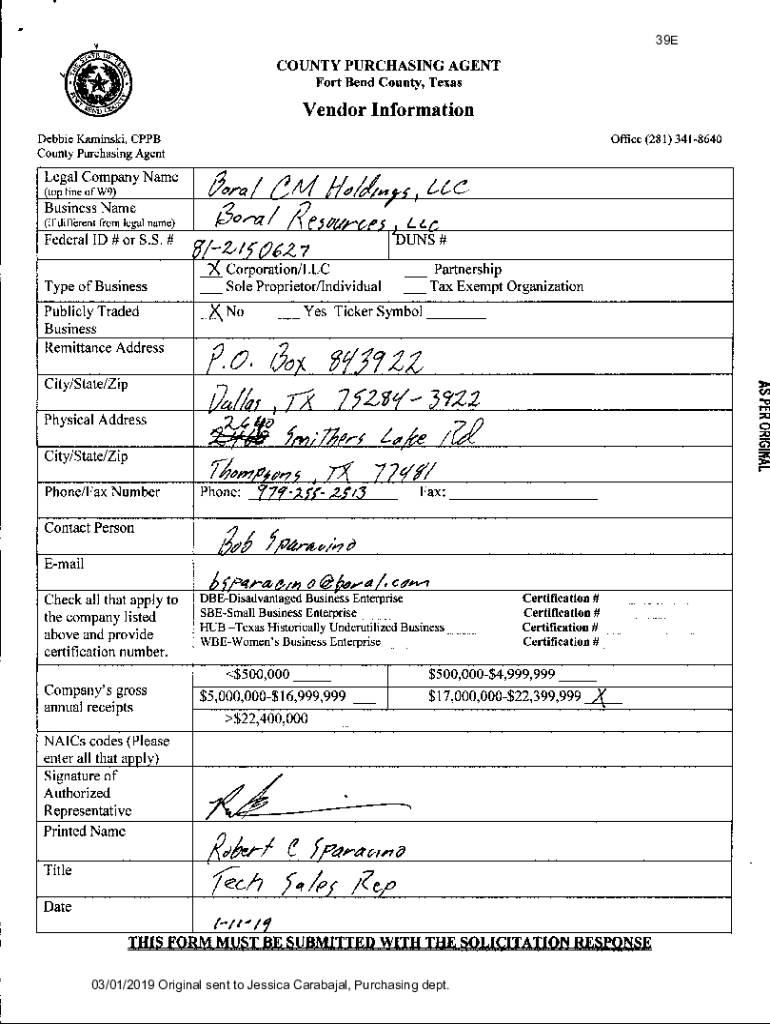 39E
COUNTY PURCHASING AGENT
Fort Bend County, Texas
Vendor Information
Debbie Kaminski, CPPB
County Purchasing Agent
Office (281) 341-8640
Legal Company Name
(top line of W9)
Boral CM Holdings, LLC
Business Name
(if different from legal name)
Boral Resources, LLC
Federal ID # or S.S. # 81-2150627 DUNS #
Type of Business
X Corporation/LLC ___ Partnership
___ Sole Proprietor/Individual ___ Tax Exempt Organization
Publicly Traded
Business
X No ___ Yes Ticker Symbol ________
Remittance Address P.O. Box 843922
City/State/Zip Dallas, TX 75284-3922
Physical Address 2640 Smithers Lake Rd
City/State/Zip Thompsons, TX 77481
Phone/Fax Number Phone: 979-255-2513 Fax: ________
Contact Person Bob Sparacino
E-mail bsparacino@boral.com
Check all that apply to
the company listed
above and provide
certification number.
DBE-Disadvantaged Business Enterprise Certification #
SBE-Small Business Enterprise Certification #
HUB –Texas Historically Underutilized Business Certification #
WBE-Women's Business Enterprise Certification #
Company's gross
annual receipts
<$500,000 _____ $500,000-$4,999,999 _____
$5,000,000-$16,999,999 ___ $17,000,000-$22,399,999 X
>$22,400,000
NAICs codes (Please
enter all that apply)
Signature of
Authorized
Representative
Printed Name Robert C Sparacino
Title Tech Sales Rep
Date 1-11-19
THIS FORM MUST BE SUBMITTED WITH THE SOLICITATION RESPONSE
03/01/2019 Original sent to Jessica Carabajal, Purchasing dept.
AS PER ORIGINAL